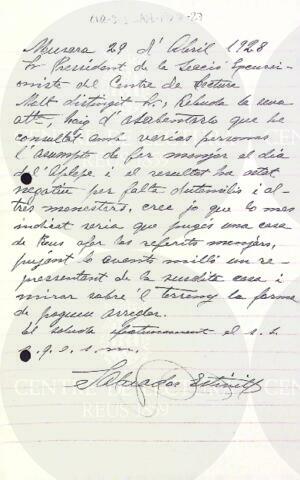 Musara 29 d'Abril 1928
Sr President de la Secció Excursi-
oniste del Centre de Lectura
Molt distingit Sr, Rebuda la seva
att, haig d'asabentarlo que he
consultat amb varias personas
l'asumpte de fer menjar el dia
de l'Aplech i el resultat ha estat
negatiu per falta d'utensilis i al-
tres menesters, crec jo que lo mes
indicat seria que pugés una casa
de Reus a fer los referits menjars,
pujant lo avents millô un re-
pressentant de la susdita casa i
mirar sobre'l terreny la forma
de pogueu arreglar.
El saluda afectuosament el s. s.
q. e. s. m.
Salvador Estivill
CENTRE DE LECTURA
REUS 1859